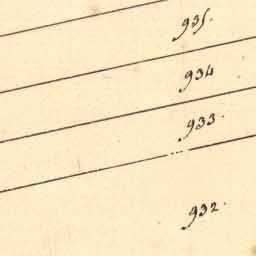 935.
934
933.
932.